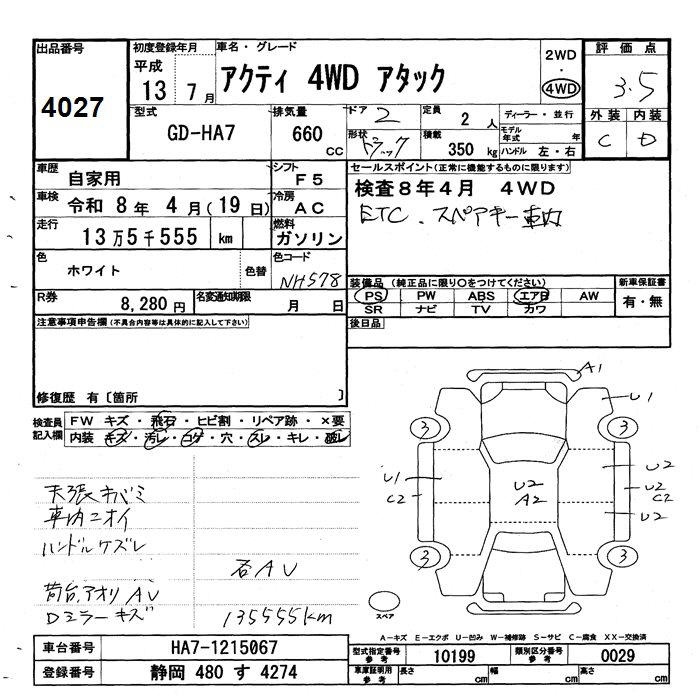 出品番号
4027
初度登録年月
平成
13 7月
車名・グレード
アクティ 4WD アタック
2WD
・
4WD
評価点
3.5
外装 内装
C D
型式
GD-HA7
排気量
660 CC
ドア 2
形状 トラック
定員 2 人
積載 350 kg
ディーラー・並行
モデル年式 年
ハンドル 左・右
車歴 自家用
シフト F5
車検 令和 8年 4月(19日)
冷房 AC
走行 13万5千555 km
燃料 ガソリン
色 ホワイト 色替
色コード NH578
R券 8,280円
名変通知期限 月 日
セールスポイント(正常に機能するものに限ります)
検査8年4月 4WD
ETC、スペアキー車内
装備品 (純正品に限り○をつけてください)
PS PW ABS エアB AW
SR ナビ TV カワ
新車保証書
有・無
後日品
注意事項申告欄(不具合内容等は具体的に記入して下さい)
修復歴 有〔箇所 〕
検査員記入欄
FW キズ・飛石・ヒビ割・リペア跡・×要
内装 キズ・汚レ・コゲ・穴・スレ・キレ・破レ
天張キバミ
車内ニオイ
ハンドルケズレ
各AU
荷台,アオリAU
Dミラーキズ
135555km
A1
U1
3
3
U1
C2
U2
A2
U2
U2
C2
U2
3
3
スペア
A-キズ E-エクボ U-凹み W-補修跡 S-サビ C-腐食 XX-交換済
車台番号 HA7-1215067
登録番号 静岡 480 す 4274
型式指定番号 参考 10199
類別区分番号 参考 0029
車庫証明用 参考 長さ cm 幅 cm 高さ cm